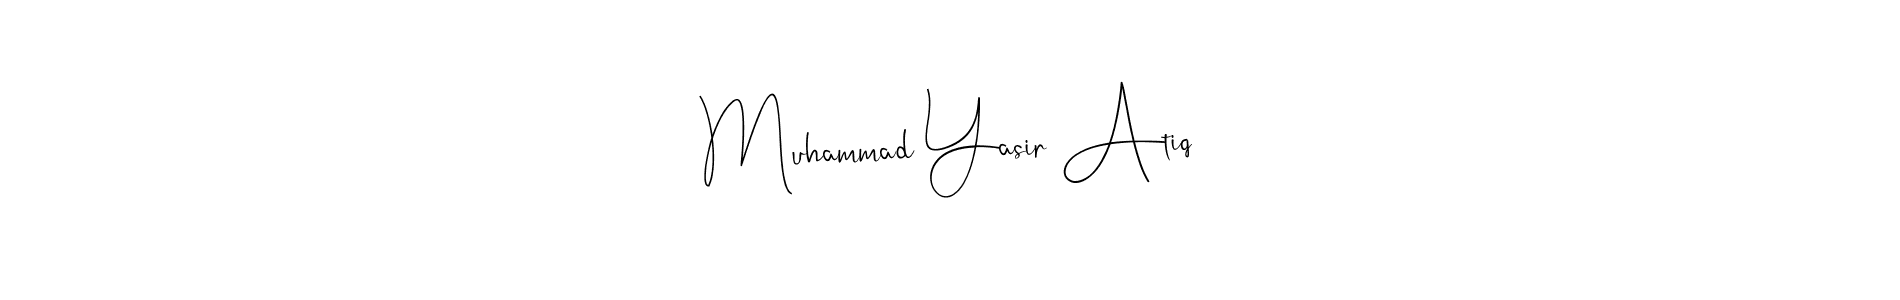 Muhammad Yasir Atiq